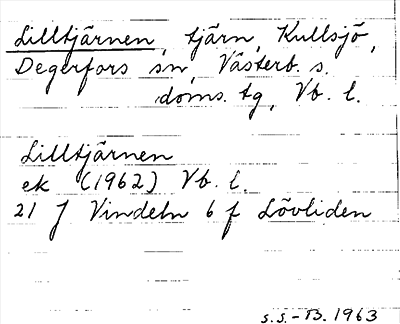 Lilltjärnen, tjärn, Kullsjö,
Degerfors sn, Västerb. s.
doms. tg, Vb. l.
Lilltjärnen
ek (1962) Vb. l.
21 J Vindeln 6 f Lövliden
S.S.-B. 1963